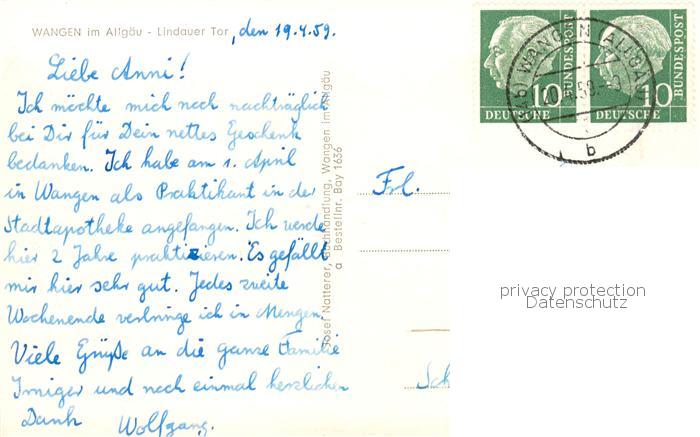 WANGEN im Allgäu - Lindauer Tor, den 19.4.59.
Liebe Anni!
Ich möchte mich noch nachträglich
bei Dir für Dein nettes Geschenk
bedanken. Ich habe am 1. April
in Wangen als Praktikant in der
Stadtapotheke angefangen. Ich werde
hier 2 Jahre praktizieren. Es gefällt
mir hier sehr gut. Jedes zweite
Wochenende verbringe ich in Mengen.
Viele Grüße an die ganze Familie
und noch einmal herzlichen
Dank Wolfgang.
Josef Natterer, Buchhandlung, Wangen im Allgäu
a Bestellnr. Bay 1636
Frl.
Sch
10
DEUTSCHE
BUNDESPOST
10
DEUTSCHE
BUNDESPOST
WANGEN (ALLGÄU)
b
privacy protection
Datenschutz